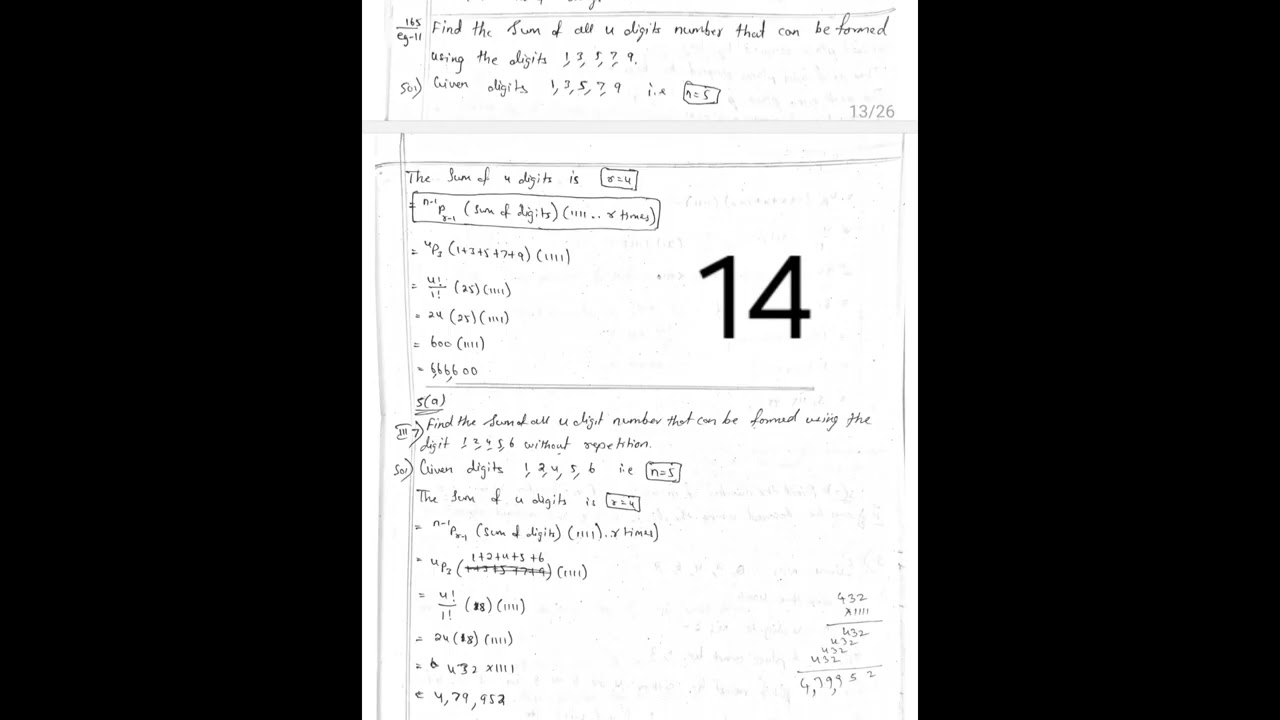 165
eg-11 Find the Sum of all 4 digits number that can be formed
using the digits 1, 3, 5, 7, 9.
Sol) Given digits 1, 3, 5, 7, 9 i.e n=5
13/26
The Sum of 4 digits is r=4
= ⁿ⁻¹Pᵣ₋₁ (Sum of digits) (1111... r times)
= ⁴P₃ (1+3+5+7+9) (1111)
= 4!/1! (25) (1111)
= 24 (25) (1111)
= 600 (1111)
= 6,66,600
14
5(a)
III 7) Find the sum of all 4 digit number that can be formed using the
digit 1, 2, 4, 5, 6 without repetition.
Sol) Given digits 1, 2, 4, 5, 6 i.e n=5
The Sum of 4 digits is r=4
= ⁿ⁻¹Pᵣ₋₁ (Sum of digits) (1111). r times)
1+2+4+5+6
= ⁴P₃ (1+3+5+7+9) (1111)
= 4!/1! (18) (1111)
= 24 (18) (1111)
= 432 x1111
= 4,79,952
432
x1111
432
432
432
432
4,79,952